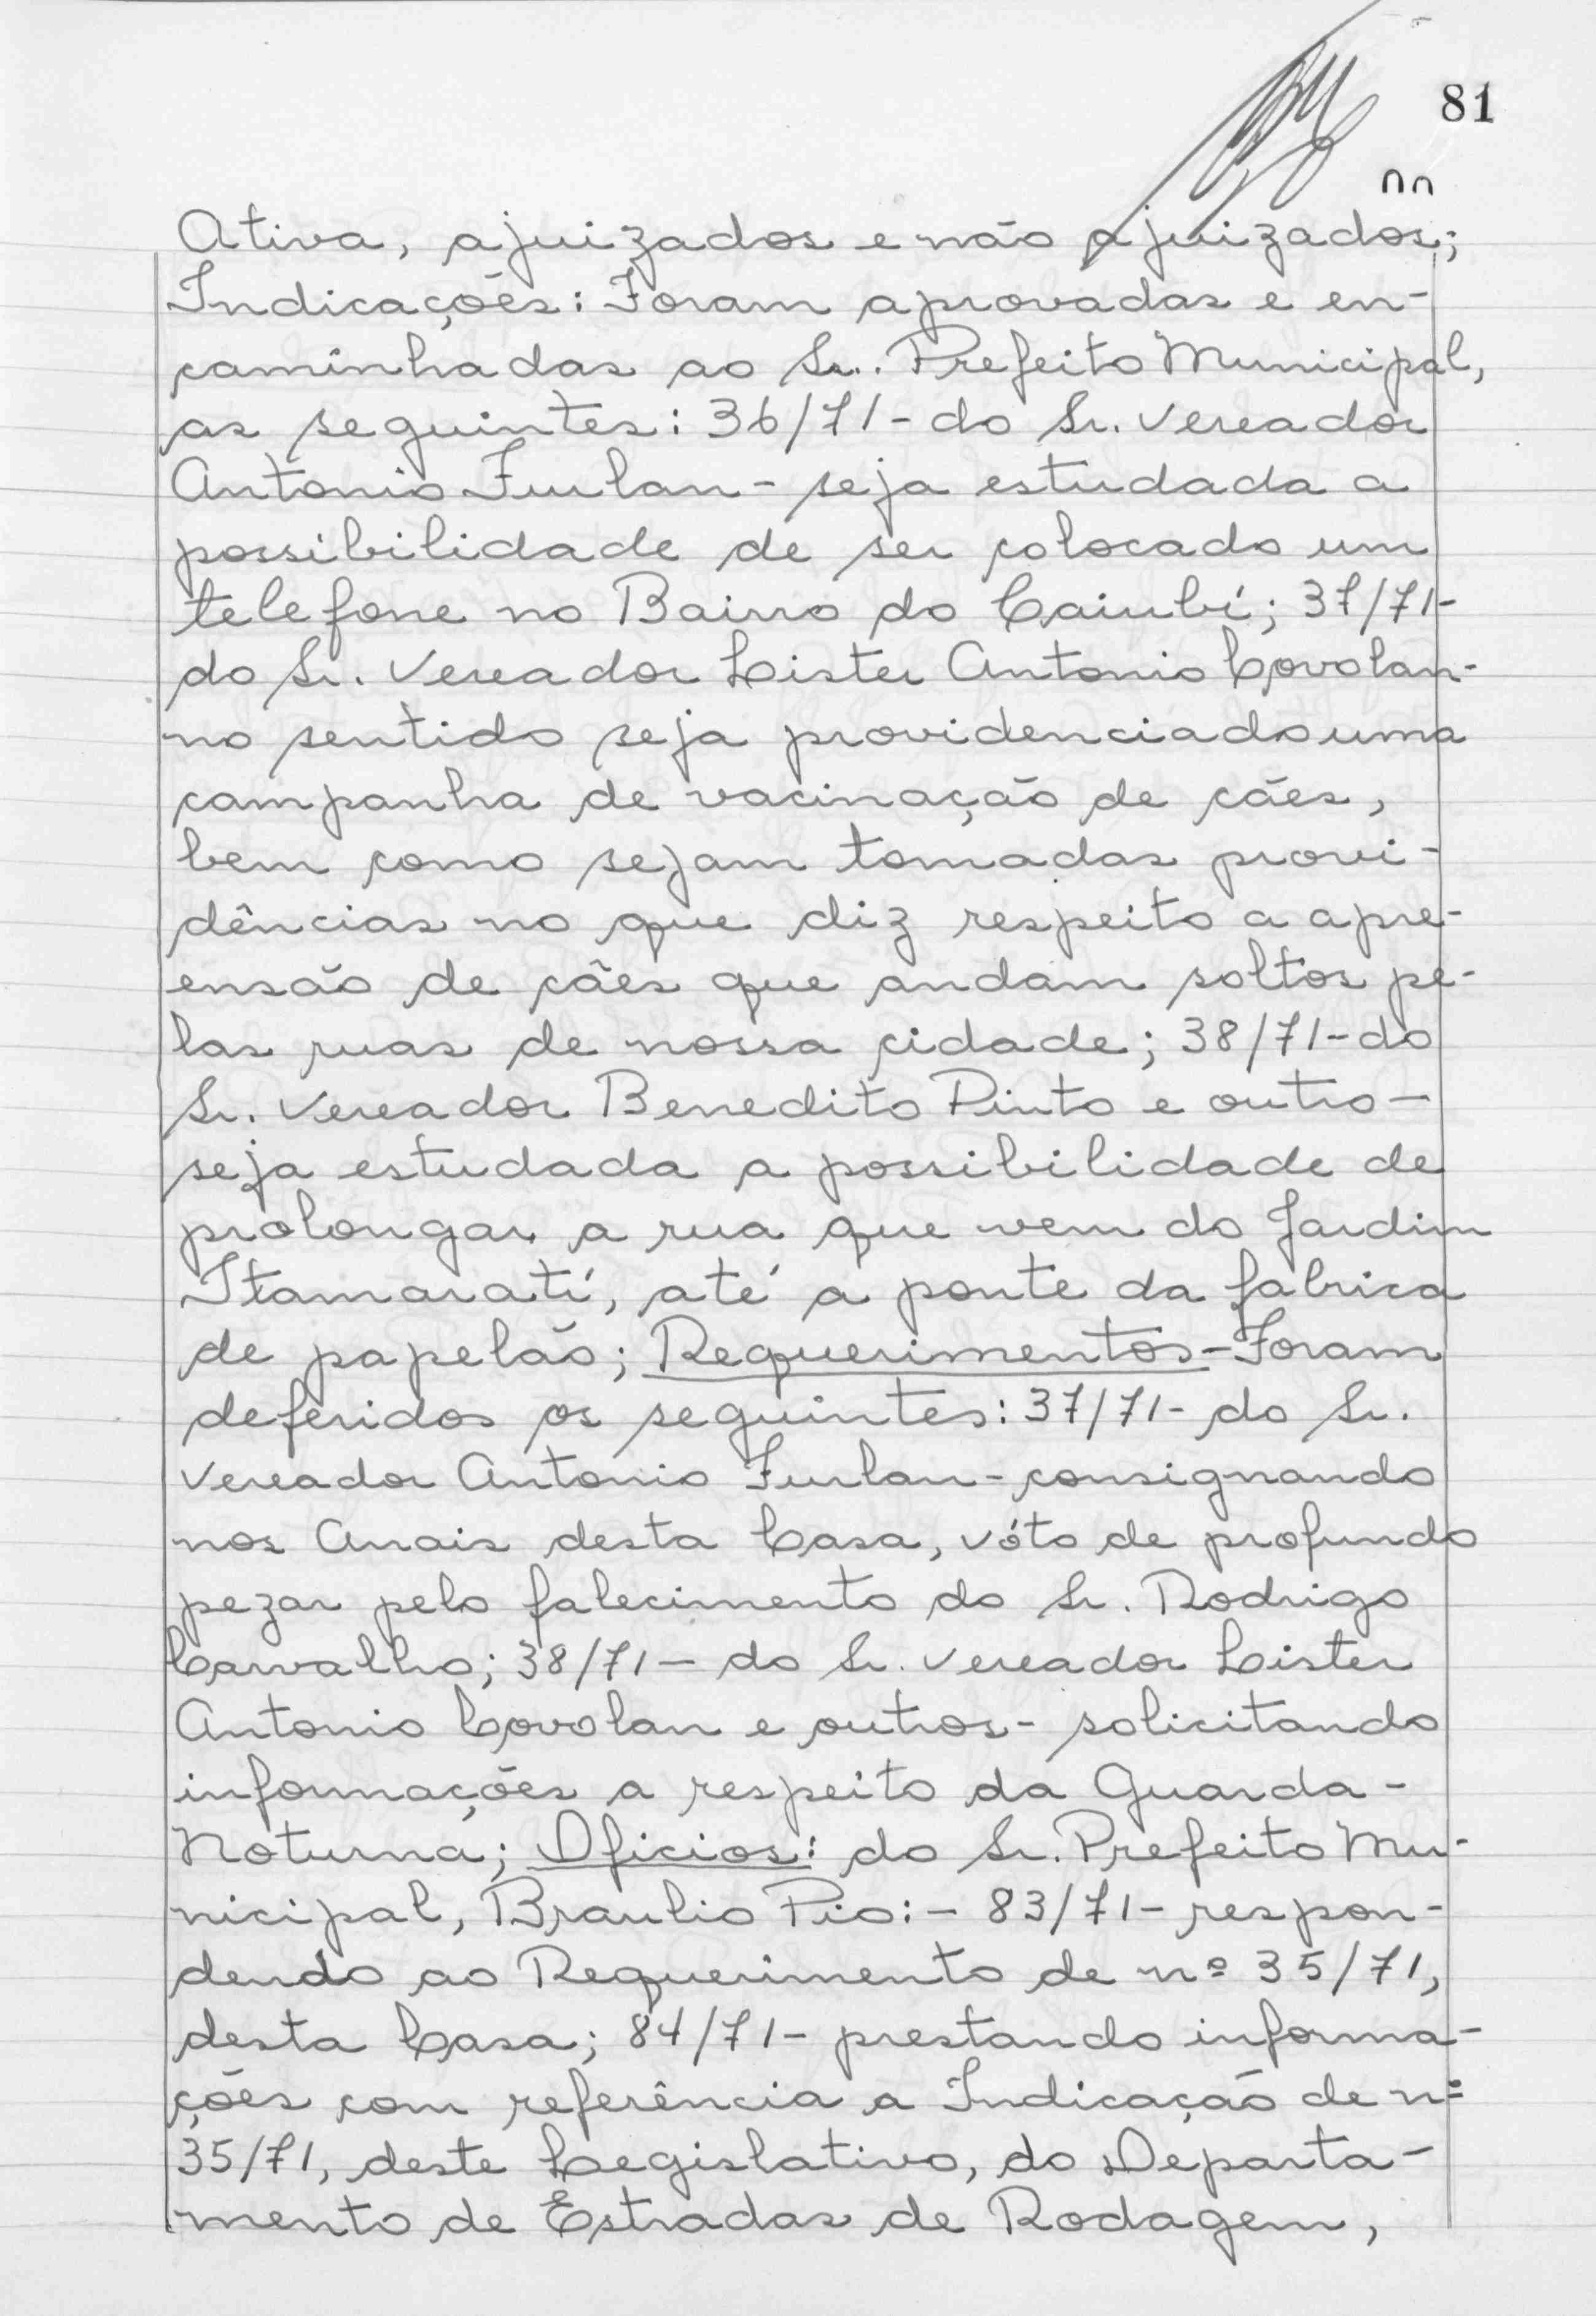 81
Ativa, ajuizados e não ajuizados;
Indicações: Foram aprovadas e en-
caminhadas ao Sr. Prefeito Municipal,
as seguintes: 36/71- do Sr. Vereador
Antonio Furlan - seja estudada a
possibilidade de ser colocado um
telefone no Bairro do Caiubí; 37/71-
do Sr. Vereador Lister Antonio Covolan-
no sentido seja providenciado uma
campanha de vacinação de cães,
bem como sejam tomadas provi-
dências no que diz respeito a apre-
ensão de cães que andam soltos pe-
las ruas de nossa cidade; 38/71-do
Sr. Vereador Benedito Pinto e outro-
seja estudada a possibilidade de
prolongar a rua que vem do Jardim
Itamaratí, até a ponte da fabrica
de papelão; Requerimentos-Foram
deferidos os seguintes: 37/71- do Sr.
Vereador Antonio Furlan-consignando
nos Anais desta Casa, vóto de profundo
pezar pelo falecimento do Sr. Rodrigo
Carvalho; 38/71- do Sr. Vereador Lister
Antonio Covolan e outros- solicitando
informações a respeito da Guarda-
Noturna; Oficios: do Sr. Prefeito Mu-
nicipal, Braulio Pio:- 83/71- respon-
dendo ao Requerimento de nº 35/71,
desta Casa; 84/71- prestando informa-
ções com referência a Indicação de nº
35/71, deste Legislativo, do Departa-
mento de Estradas de Rodagem,